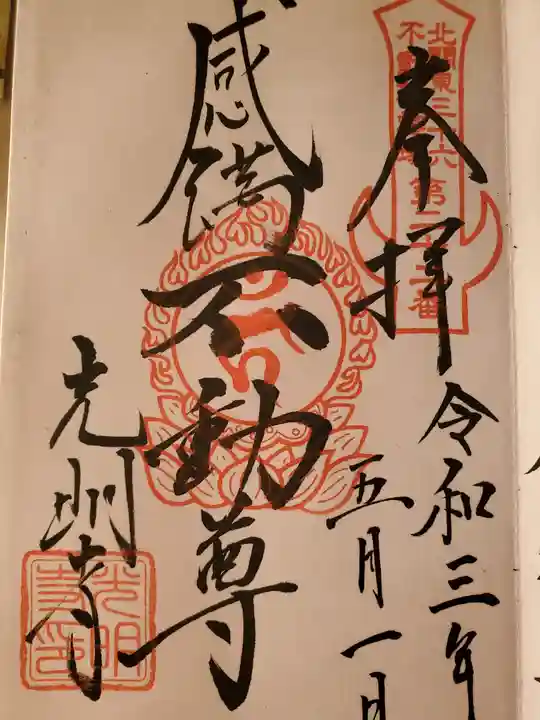 奉拝
令和三年
五月一日
感満不動尊
光明寺
北関東三十六
不動
第二十二番
光明寺印